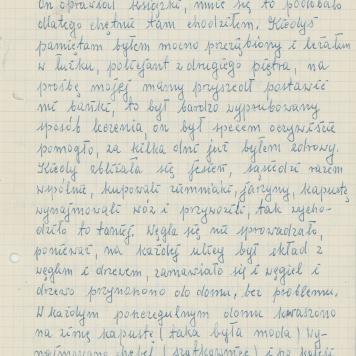 On oprawiał książki, mnie się to podobało
dlatego chętnie tam chodziłem. Kiedyś
pamiętam byłem mocno przeziębiony i leżałem
w łóżku, policjant z drugiego piętra, na
prośbę mojej mamy przyszedł postawić
mi bańki, to był bardzo wypróbowany
sposób leczenia, on był specem oczywiście
pomogło, za kilka dni już byłem zdrowy.
Kiedy zbliżała się jesień, sąsiedzi razem
wspólnie, kupowali ziemniaki, jarzyny, kapustę
wynajmowali wóz i przywozili, tak wycho-
dziło to taniej. Węgla się nie sprowadzało,
ponieważ, na każdej ulicy był skład z
węglem i drzewem, zamawiało się i węgiel i
drzewo przynoszono do domu, bez problemu.
W każdym poszczególnym domu kwaszono
na zimę kapustę (taka była moda) Wy-